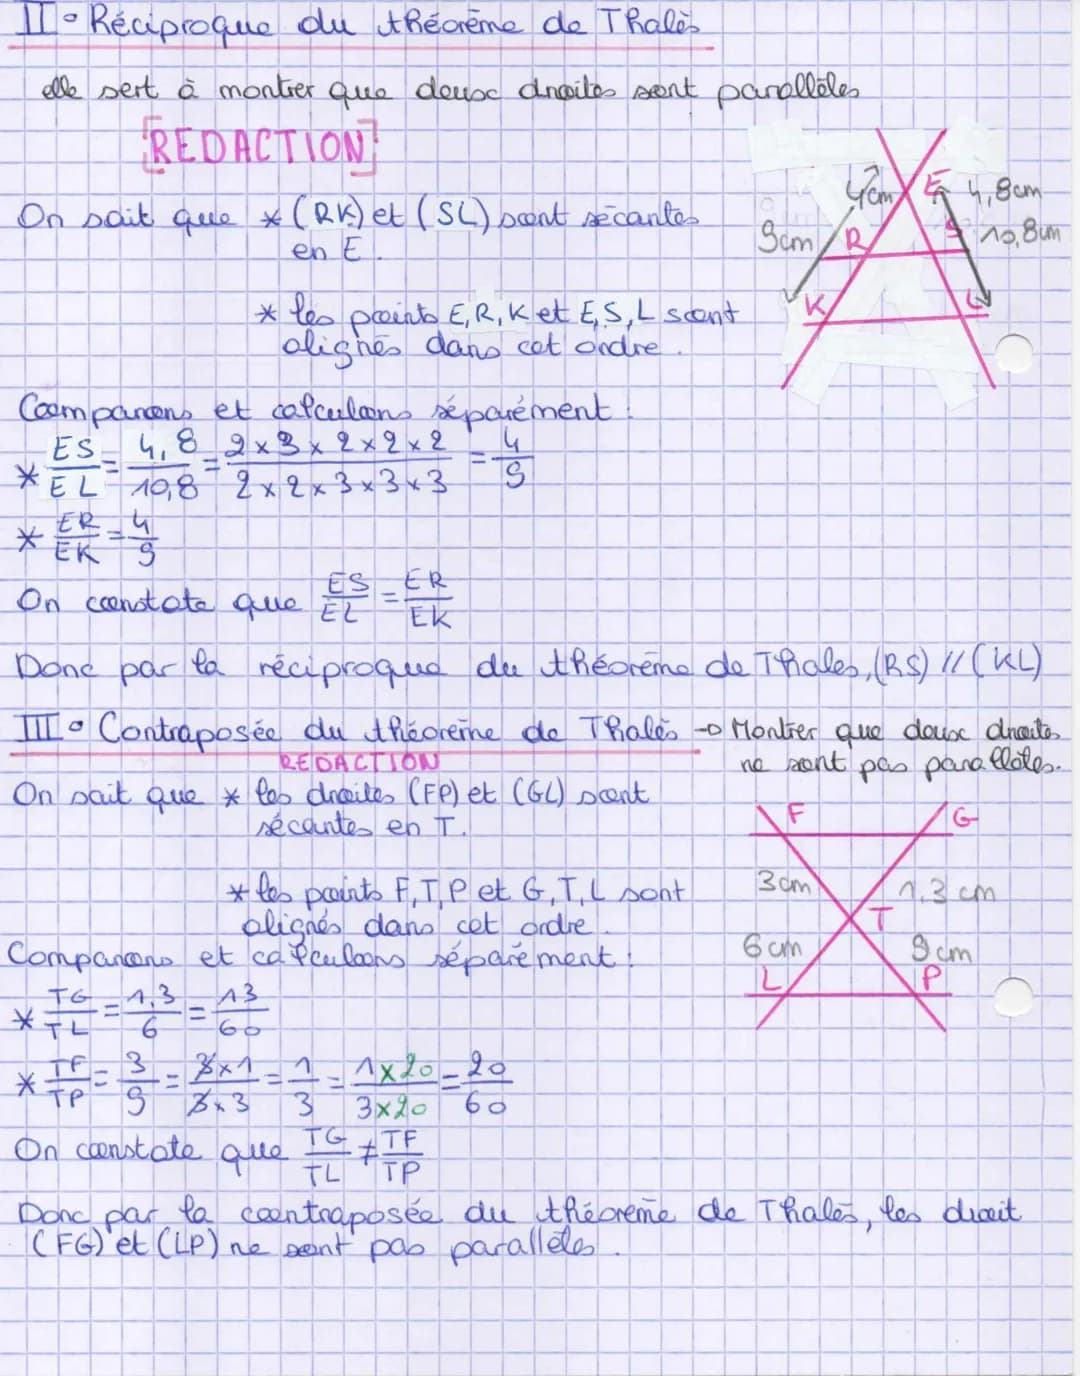 II - Réciproque du théorème de Thalès
elle sert à montrer que deux droites sont parallèles
[REDACTION]
4cm E 4,8cm
9cm R S 10,8cm
K L
On sait que * (RK) et (SL) sont sécantes
en E.
* les points E, R, K et E, S, L sont
alignés dans cet ordre.
Comparons et calculons séparément :
* ES/EL = 4,8/10,8 = 2×3×2×2×2/2×2×3×3×3 = 4/9
* ER/EK = 4/9
On constate que ES/EL = ER/EK
Donc par la réciproque du théorème de Thales, (RS) // (KL)
III - Contraposée du théorème de Thalès → Montrer que deux droites
ne sont pas parallèles.
REDACTION
On sait que * les droites (FP) et (GL) sont
sécantes en T.
* les points F, T, P et G, T, L sont
alignés dans cet ordre.
F G
3cm 1,3 cm
T
6cm 9cm
L P
Comparons et calculons séparément :
* TG/TL = 1,3/6 = 13/60
* TF/TP = 3/9 = 3×1/3×3 = 1/3 = 1×20/3×20 = 20/60
On constate que TG/TL ≠ TF/TP
Donc par la contraposée du théorème de Thalès, les droit
(FG) et (LP) ne sont pas parallèles.